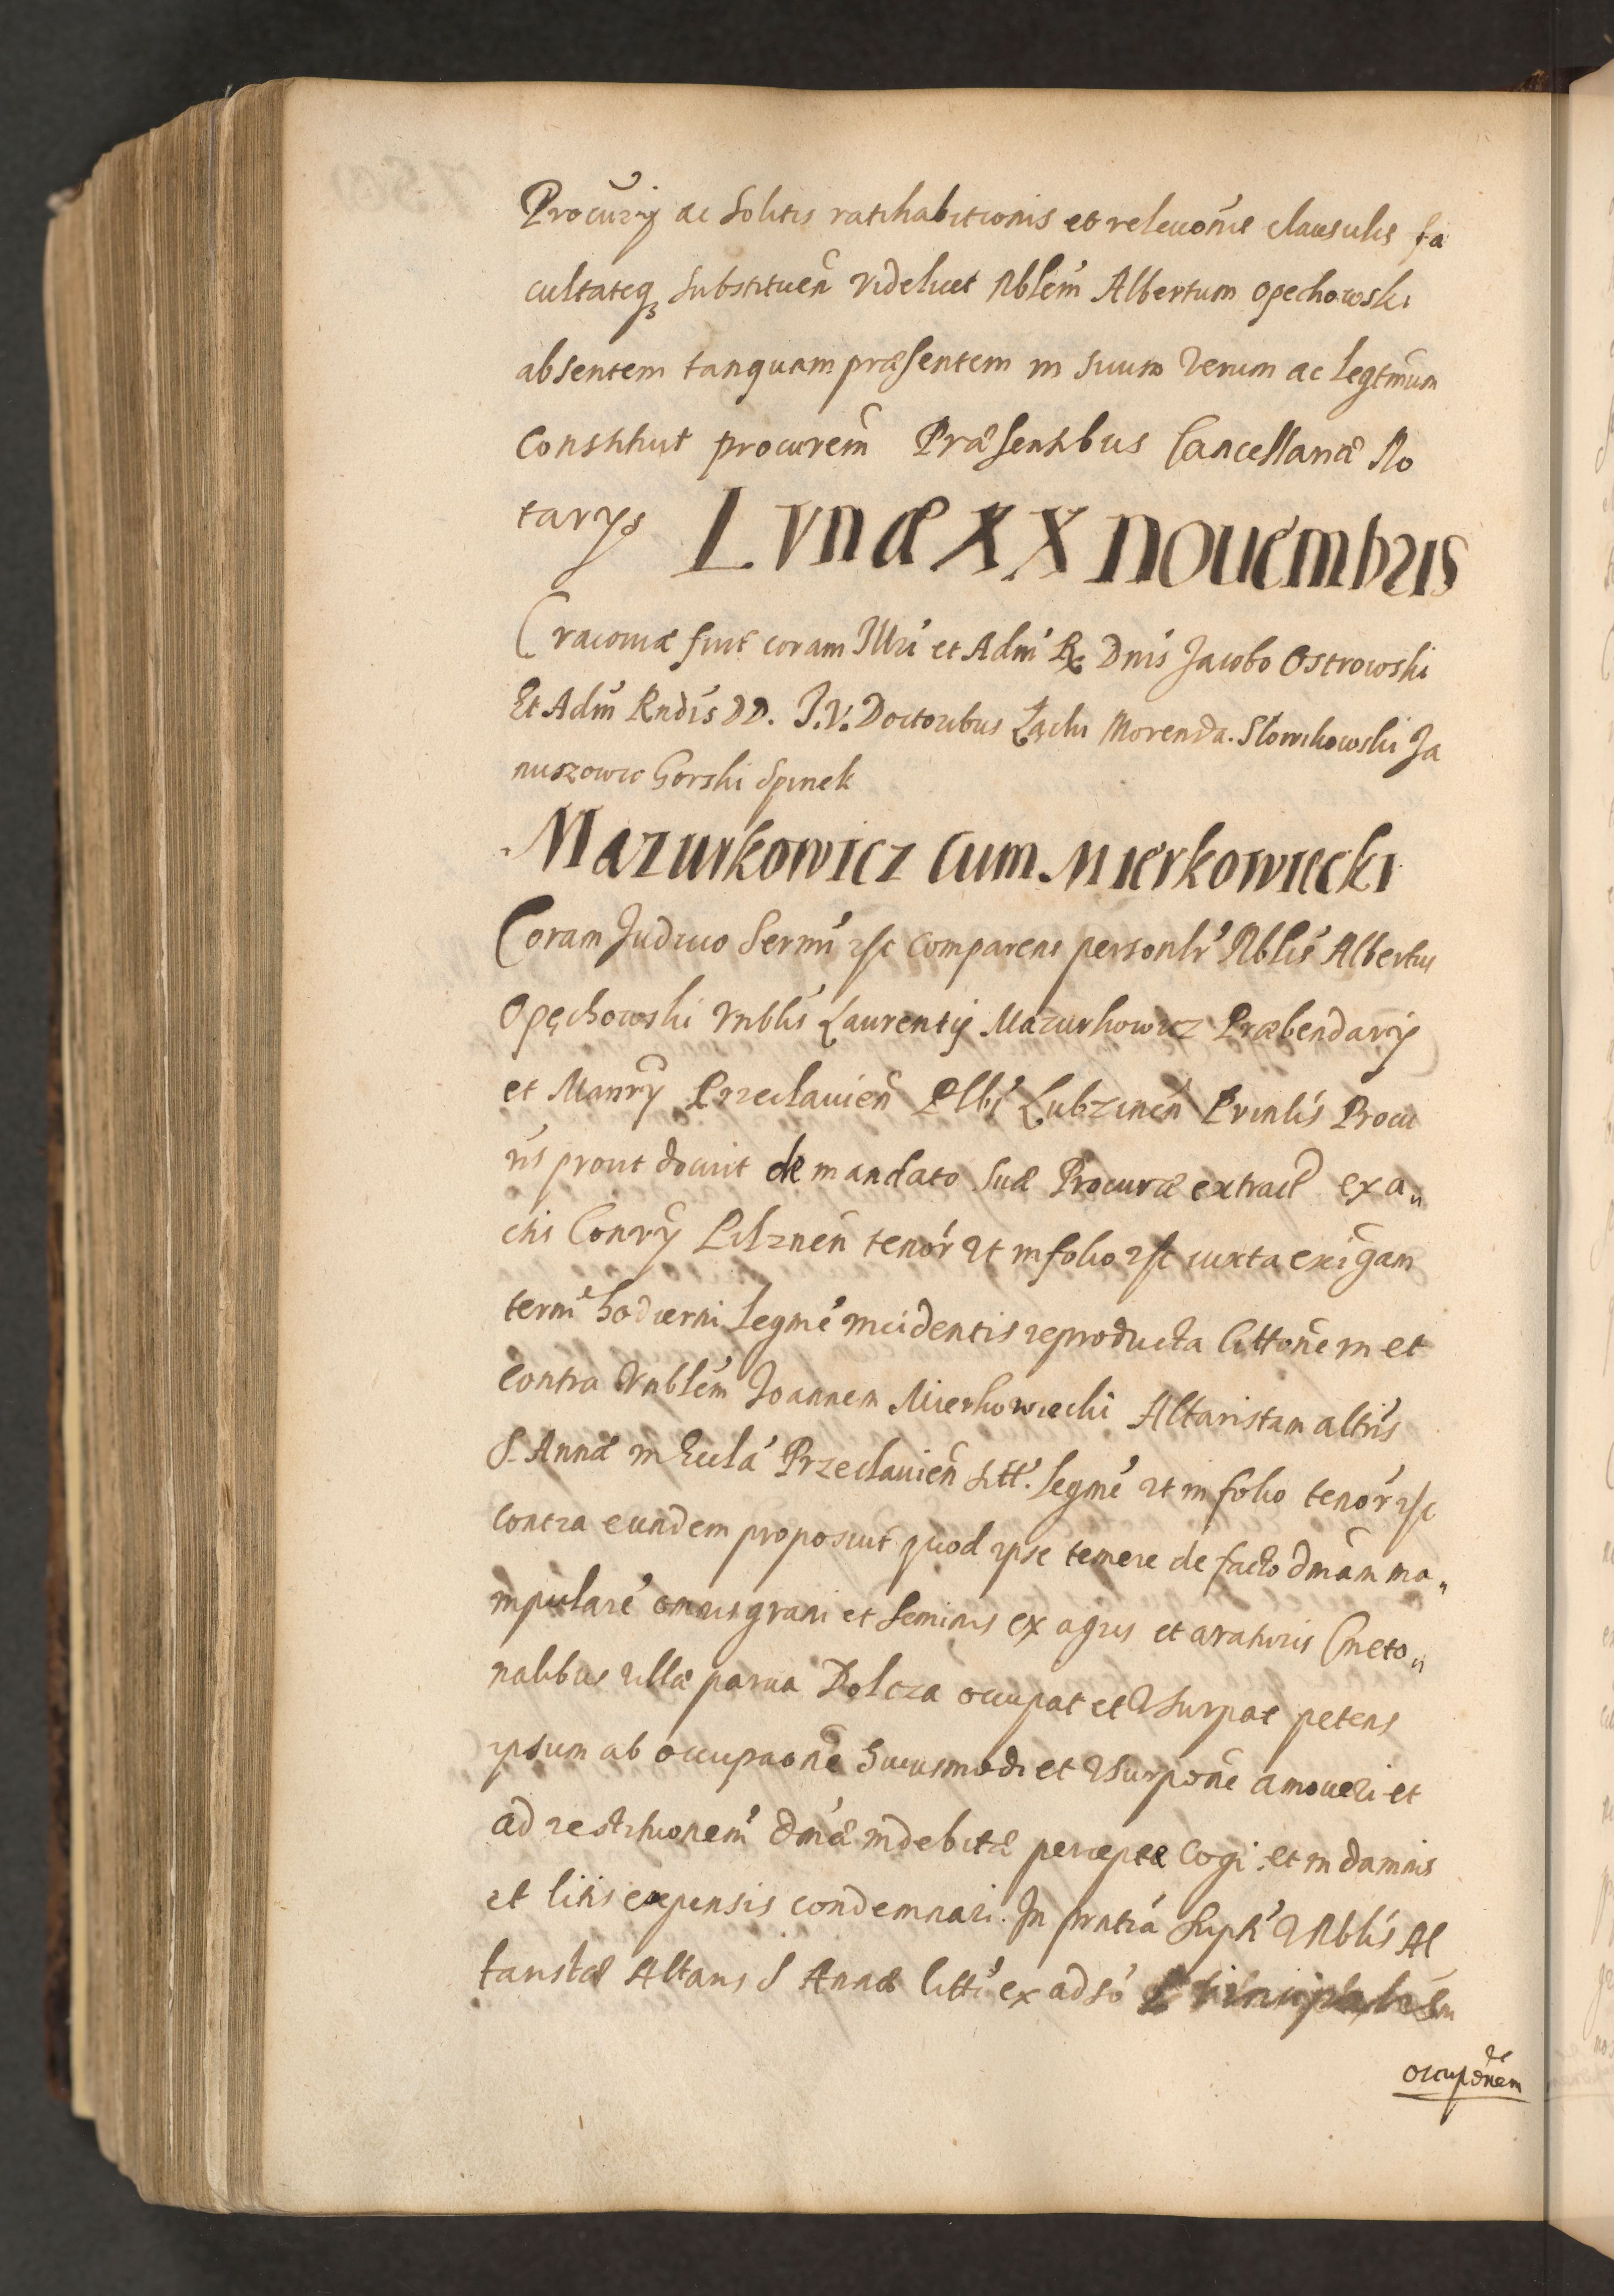 Procurij ac solitis ratihabitionis et releuonis clausulis fa
cultateq substituen videlicet Nblem Albertum Opechowski
absentem tanquam præsentem in suum verum ac legtmum
Constituit procurem Præsentibus Cancellariæ No
tarys LVnæ XX nouembris
Cracouiæ fuit coram Illri et Adm R Dnis Jacobo Ostrowski
Et Adm Rndis DD. J.V. Doctoribus Łącki Morenda. Słowikowski Ja
nuszowic Gorski Spinek
Mazurkowicz Cum Mierkowiecki
Coram Judicio Sermi etc comparens personlr Nblis Albertus
Opęchowski Vnblis Laurentij Mazurkowicz Præbendarij
et Manrij Przeclauien Plbi Lubzinen Prinlis Procu
ris prout docuit de mandato suæ Procuræ extract ex a„
ctis Conrij Pilznen tenor vt in folio etc iuxta exigam
termi hodierni legme incidentis reproducta Cittonem et
contra Vnblem Joannem Mierkowiecki Altaristam altris
S. Annæ in Eccla Przeclauien citt. legme vt in folio tenor etc
contra eundem proposuit quod ipse temere de facto dmam ma„
nipulare omnis grani et seminis ex agris et araturis Cmeto„
nalibus villæ parua Dolcza occupat et vsurpat petens
ipsum ab occupaone huiusmodi et vsurpone amoueri et
ad restituonem dmæ indebitæ perceptæ cogi et in damnis
et litis expensis condemnari. In pntia supti VNblis Al
taristæ Altaris S Annæ citti ex adso
occuponem